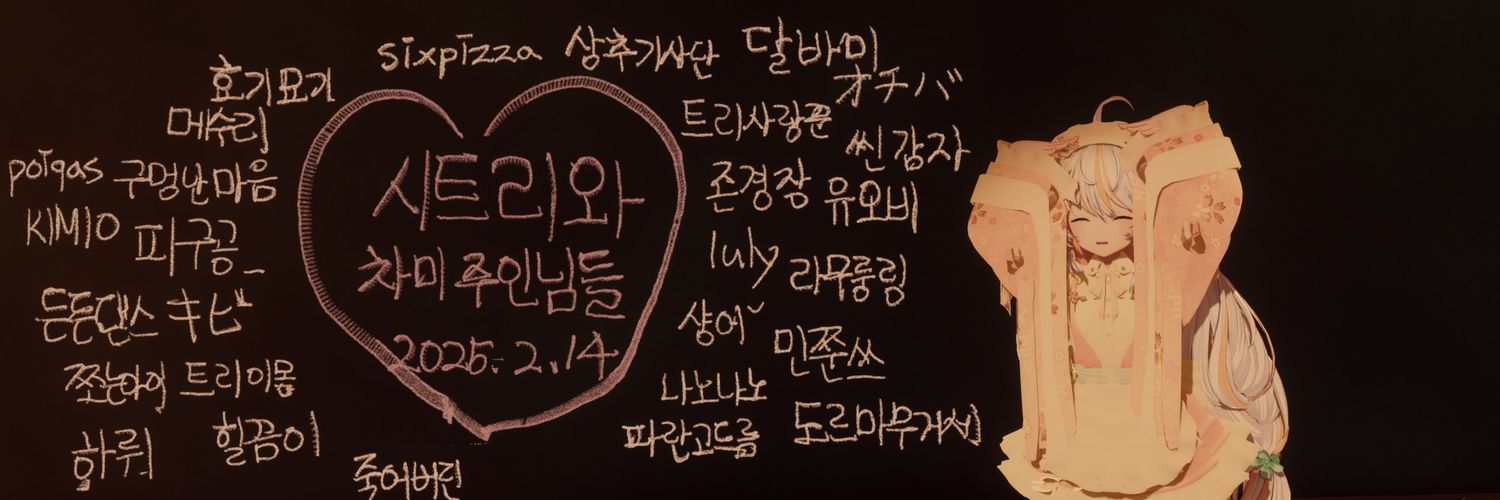 sixpizza 상추기사단 달바미
호기묘기 オチバ
메수리 트리사랑꾼 씬감자
poigas 구멍난마음 존경장 유오비
시트리와
KIMIO 피구공_ luly 라무룽링
차미 주인님들
든든댄스 キビ 샹어~ 민쭌쓰
2025. 2. 14
쪼눈아이 트리이몽 나노나노
하뤼 힐끔이 파란고드름 도르마무거서
죽어버린